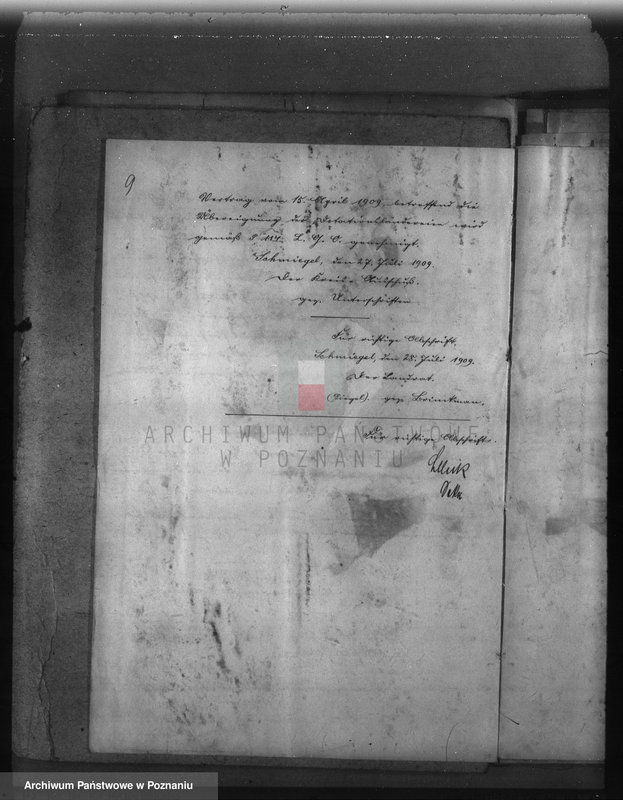 9
Vertrag vom 15. April 1909, betreffend die
Übereignung der Dotationsländereien wird
gemäß § 114. L. G. O. genehmigt.
Schmiegel, den 27. Juli 1909.
Der Kreis-Ausschuß.
gez. Unterschriften
Für richtige Abschrift.
Schmiegel, den 28. Juli 1909.
Der Landrat.
(Siegel). gez. Brinkman.
ARCHIWUM PAŃSTWOWE
W POZNANIU
Für richtige Abschrift.
Archiwum Państwowe w Poznaniu